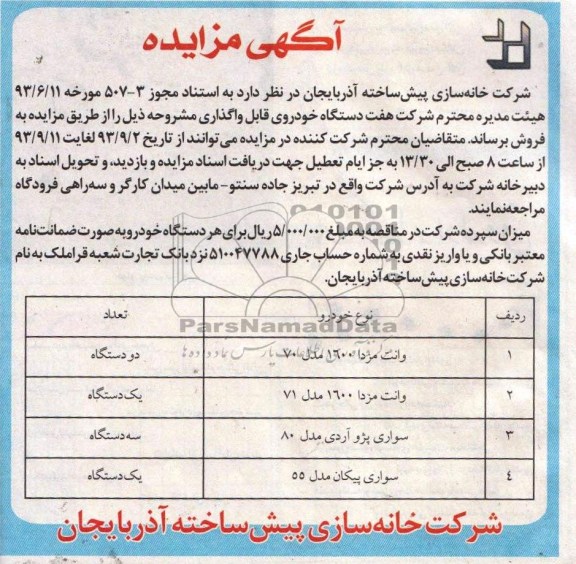 آگهی مزایده
شرکت خانه‌سازی پیش‌ساخته آذربایجان در نظر دارد به استناد مجوز ۳-۵۰۷ مورخه ۹۳/۶/۱۱
هیئت مدیره محترم شرکت هفت دستگاه خودروی قابل واگذاری مشروحه ذیل را از طریق مزایده به
فروش برساند. متقاضیان محترم شرکت کننده در مزایده می‌توانند از تاریخ ۹۳/۹/۲ لغایت ۹۳/۹/۱۱
از ساعت ۸ صبح الی ۱۳/۳۰ به جز ایام تعطیل جهت دریافت اسناد مزایده و بازدید، و تحویل اسناد به
دبیرخانه شرکت به آدرس شرکت واقع در تبریز جاده سنتو- مابین میدان کارگر و سه‌راهی فرودگاه
مراجعه‌نمایند.
میزان سپرده شرکت در مناقصه به مبلغ ۵/۰۰۰/۰۰۰ ریال برای هر دستگاه خودرو به صورت ضمانت‌نامه
معتبر بانکی و یا واریز نقدی به شماره حساب جاری ۵۱۰۰۴۷۷۸۸ نزد بانک تجارت شعبه قراملک به نام
شرکت خانه‌سازی پیش‌ساخته آذربایجان.
ردیف نوع خودرو تعداد
ParsNamadData
۱ وانت مزدا ۱۶۰۰ مدل ۷۰ دو دستگاه
۲ وانت مزدا ۱۶۰۰ مدل ۷۱ یک دستگاه
۳ سواری پژو آردی مدل ۸۰ سه دستگاه
٤ سواری پیکان مدل ۵۵ یک دستگاه
شرکت خانه‌سازی پیش‌ساخته آذربایجان